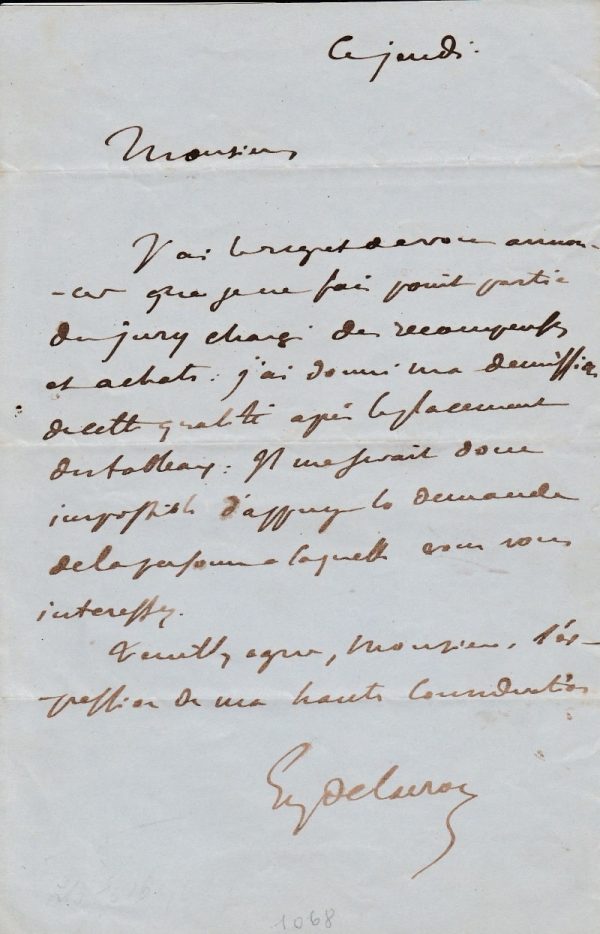 Ce jeudi.
Monsieur
J'ai le regret de vous annon-
-cer que je ne fais point partie
du jury chargé des recompenses
et achats : j'ai donné ma demission
de cette qualité après le placement
des tableaux : Il me serait donc
impossible d'appuyer la demande
de la personne a laquelle vous vous
interessez.
Veuillez agréer, Monsieur, l'ex-
-pression de ma haute consideration
Eug Delacroix
1068